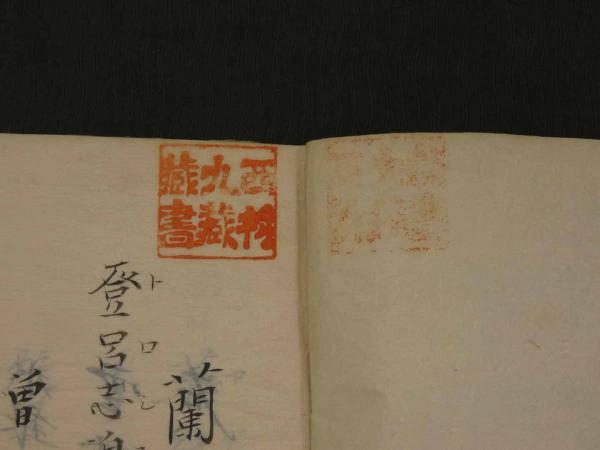 西村
九蔵
蔵書
蘭
トロシ
登呂志
曽